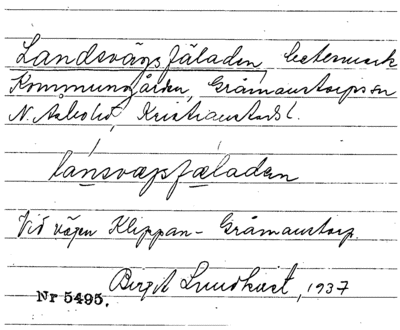 Landsvägsfäladen, betesmark
Kommunogården, Gråmanstorps sn
N. Åsbo hd, Kristianstads l.
lansvæpsfæladen
Vid vägen Klippan - Gråmanstorp.
Birgit Lundkvist, 1937
Nr 5495.